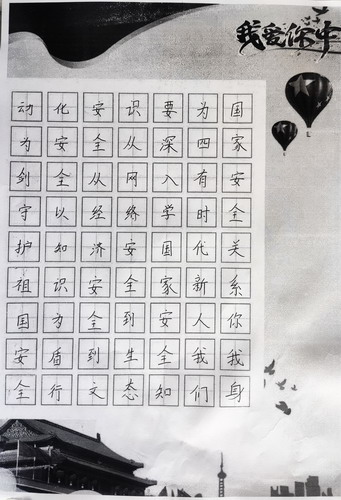 我爱你中
国家安全关系你我身
为四有时代新人我们
要深入学国家安全知
识从网络安全到生态
安全从经济安全到文
化安全以知识为盾行
动为剑守护祖国安全